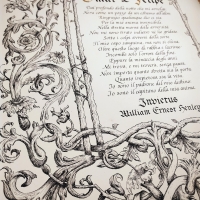 Dal profondo della notte che mi avvolge
Ringrazio qualunque dio ci sia
Per la mia anima invincibile
Nella stretta morsa delle avversità
Non mi sono tirato indietro né ho gridato
Sotto i colpi avversi della sorte
Il mio capo sanguina, ma non si china
Oltre questo luogo di rabbia e lacrime
Incombe solo l'orrore della fine
Eppure la minaccia degli anni
Mi trova, e mi troverà, senza paura
Non importa quanto stretta sia la porta
Quanto impietosa sia la vita
Io sono il padrone del mio destino
Io sono il capitano della mia anima.
Invictus
William Ernest Henley